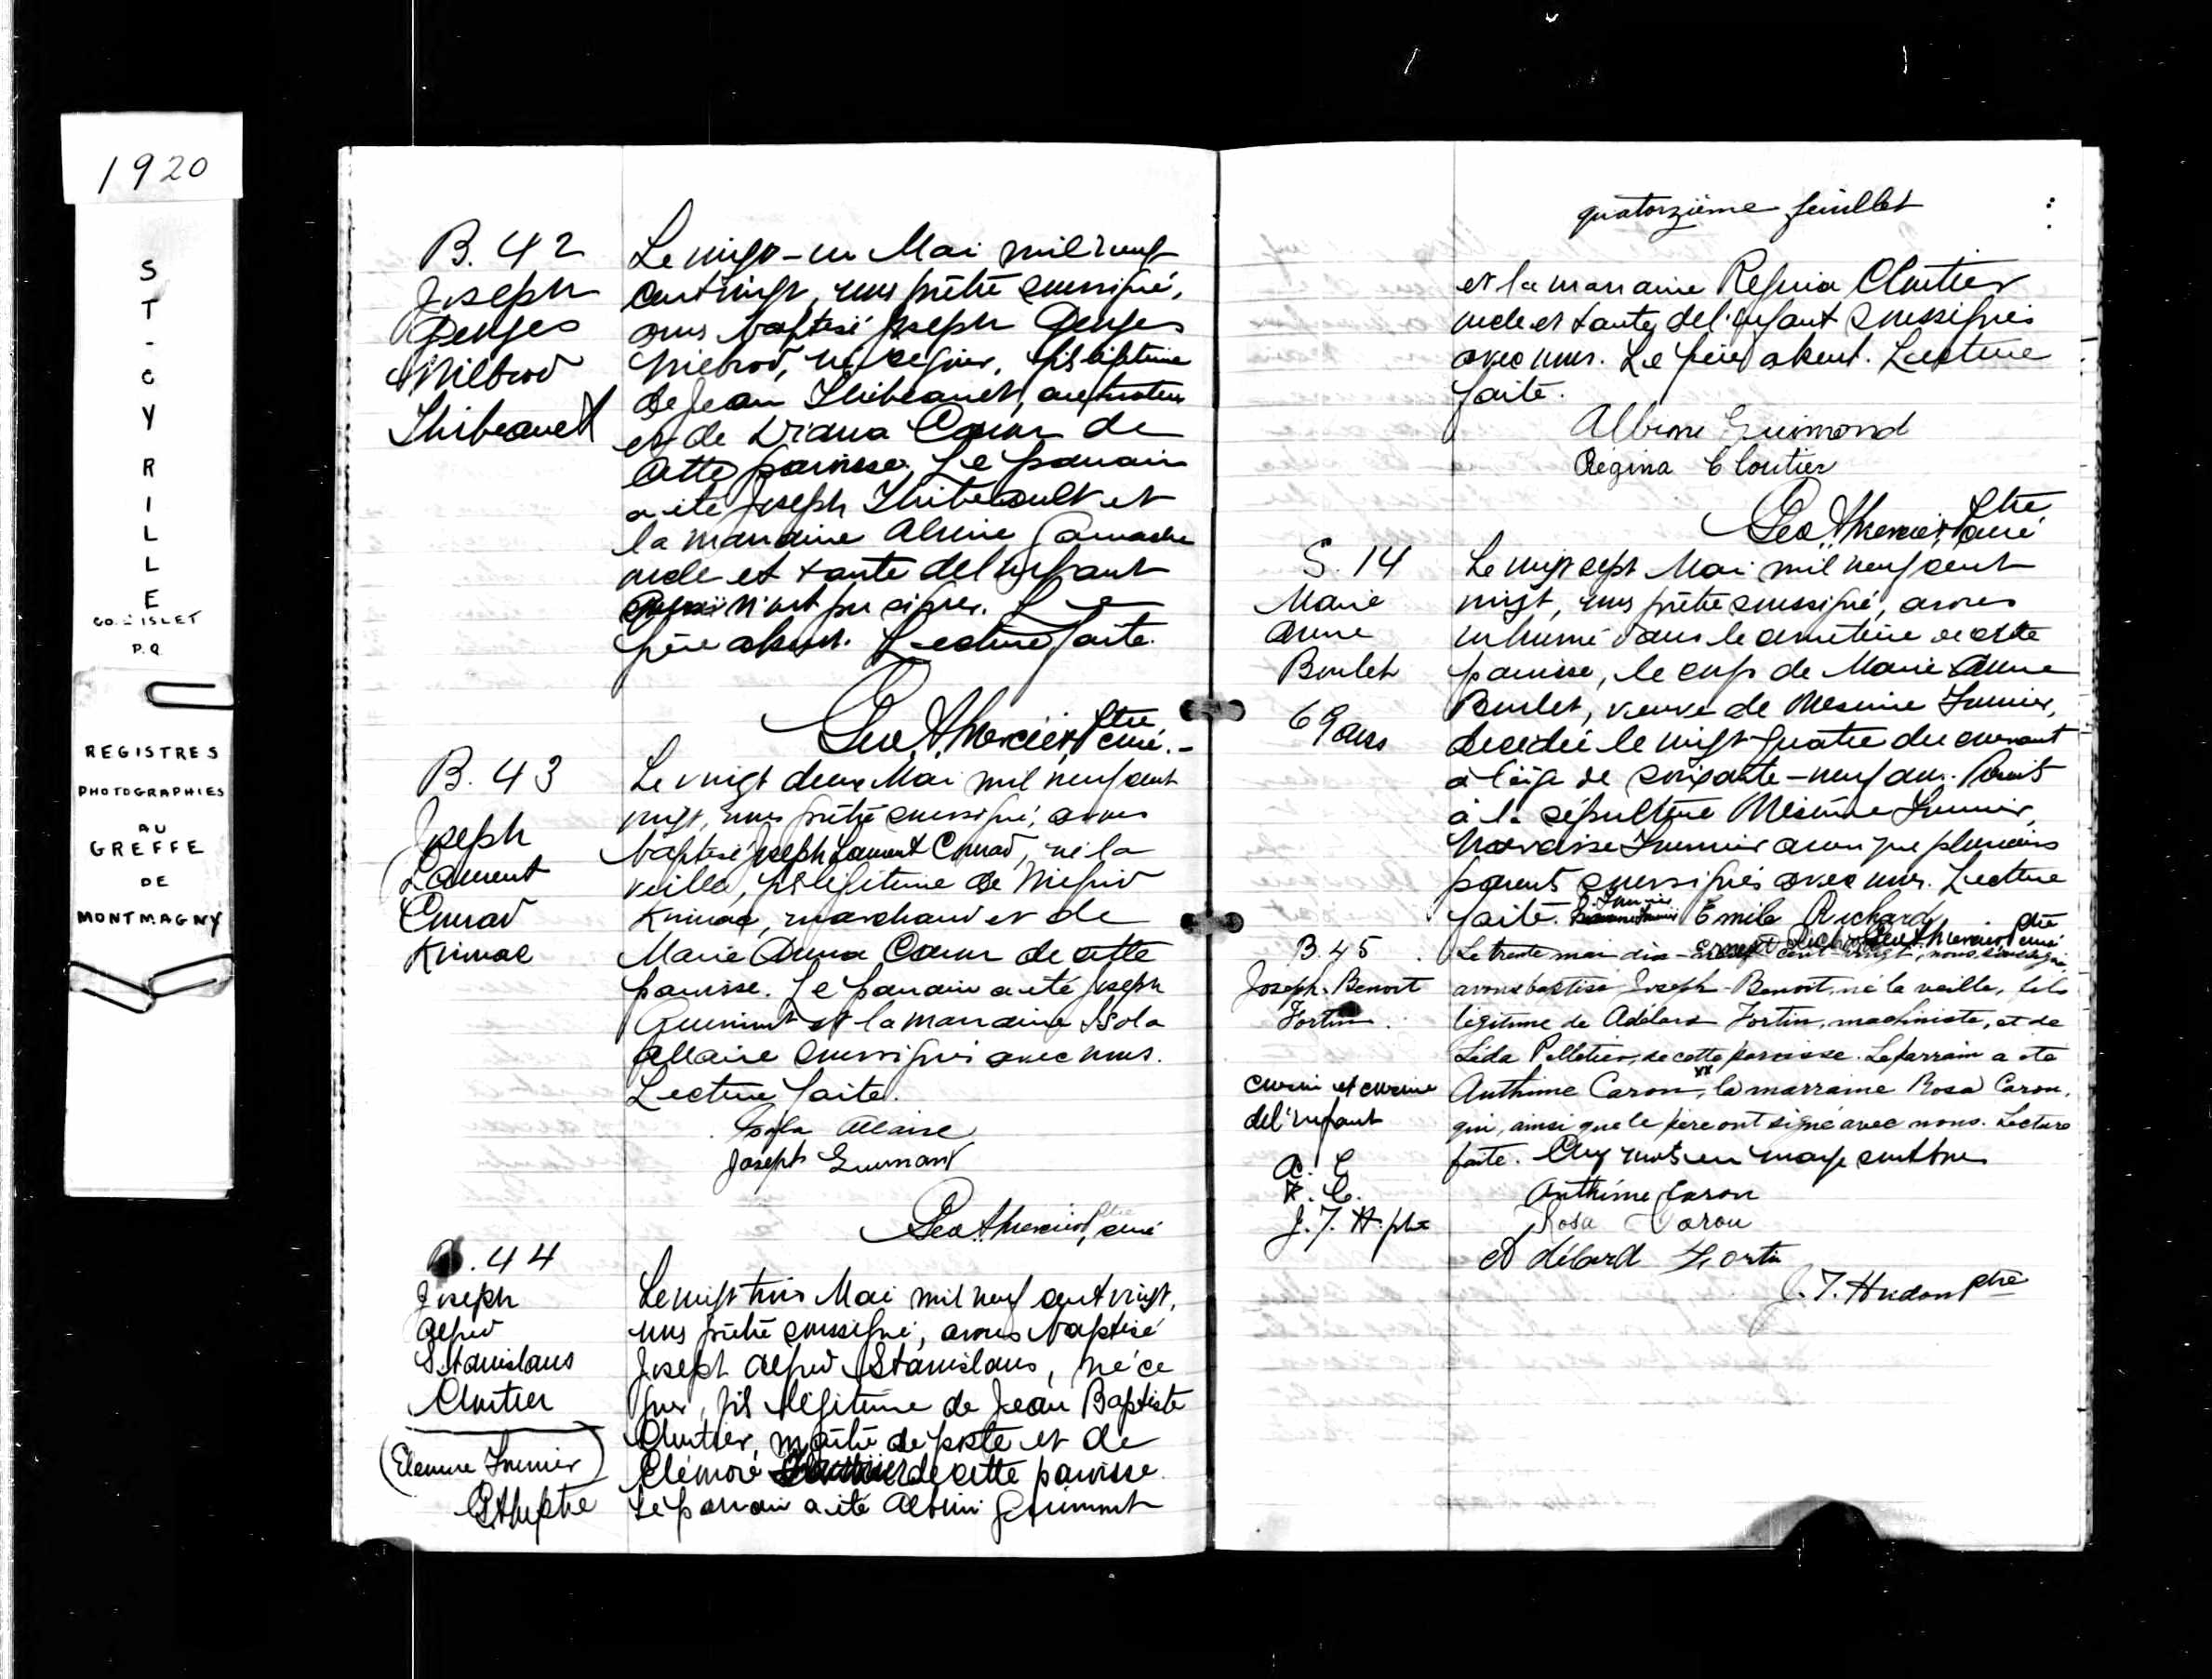 1920
ST-CYRILLE
CO. L'ISLET
P.Q
REGISTRES
PHOTOGRAPHIES
AU
GREFFE
DE
MONTMAGNY
B. 42
Joseph
Georges
Thibeault
Le vingt-un Mai mil neuf
cent vingt, nous prêtre soussigné,
avons baptisé Joseph Georges
né ce jour, fils légitime
de Jean Thibeault,
et de Diana Caron de
cette paroisse. Le parrain
a été Joseph Thibeault et
la marraine Gamache
oncle et tante de l'enfant
qui n'ont pu signer. Le
père absent. Lecture faite.
Geo. A. Mercier, Ptre curé.-
B. 43
Joseph
Laurent
Conrad
Le vingt deux Mai mil neuf cent
vingt, nous prêtre soussigné, avons
baptisé Joseph Laurent Conrad, né la
veille, fils légitime de
marchand et de
Marie Anna Caron de cette
paroisse. Le parrain a été Joseph
Guimont et la marraine Isola
Allaire soussignés avec nous.
Lecture faite.
Isola Allaire
Joseph Guimont
Geo. A. Mercier, Ptre curé
B. 44
Joseph
Alfred
Stanislaus
Cloutier
Le vingt trois Mai mil neuf cent vingt,
nous prêtre soussigné, avons baptisé
Joseph Alfred Stanislaus, né ce
jour, fils légitime de Jean Baptiste
Cloutier, maître de poste et de
de cette paroisse.
Le parrain a été Guimont
quatorzième feuillet
et la marraine Regina Cloutier
oncle et tante de l'enfant soussignés
avec nous. Le père absent. Lecture
faite.
Guimond
Régina Cloutier
Geo. A. Mercier, Ptre curé
S. 14
Marie
Anne
Boulet
69 ans
Le vingt sept Mai mil neuf cent
vingt, nous prêtre soussigné, avons
inhumé dans le cimetière de cette
paroisse, le corps de Marie Anne
Boulet, veuve de Fournier,
décédée le vingt-quatre du courant
à l'âge de soixante-neuf ans. Présents
à la sépulture Fournier,
Fournier ainsi que plusieurs
parents soussignés avec nous. Lecture
faite. Emile Richard
Ernest Richard Geo. A. Mercier Ptre curé
B. 45
Joseph-Benoit
Fortin
Le trente mai dix-neuf cent vingt, nous, soussigné,
avons baptisé Joseph-Benoit, né la veille, fils
légitime de Adélard Fortin, machiniste, et de
Léda Pelletier, de cette paroisse. Le parrain a été
Anthime Caron, xx la marraine Rosa Caron,
qui, ainsi que le père ont signé avec nous. Lecture
faite. Cinq mots en marge sont bons
cousin et cousine
de l'enfant
A. C.
R. C.
J. T. H. ptre
Anthime Caron
Rosa Caron
Adélard Fortin
J. T. Hudon ptre